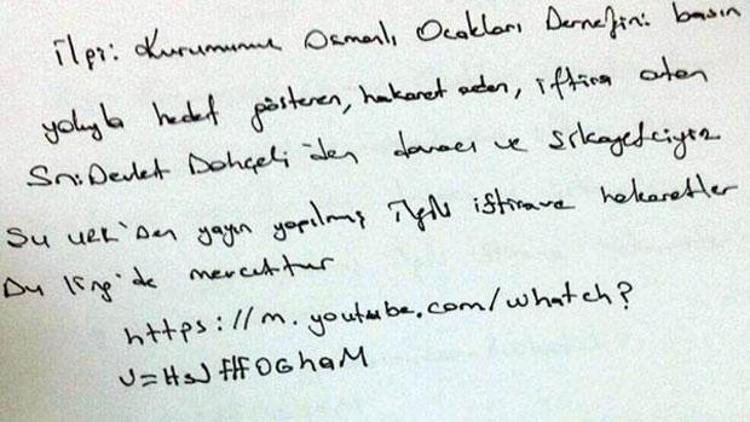 ilgi: Kurumumuz Osmanlı Ocakları Derneğini basın
yoluyla hedef gösteren, hakaret eden, iftira atan
Sn: Devlet Bahçeli'den davacı ve şikayetciyiz
Su URK'Den yayın yapılmış ilgili iftirave hakaretler
Du ling'de mevcuttur
https://m.youtube.com/whatch?
v=HsJfFOGhaM